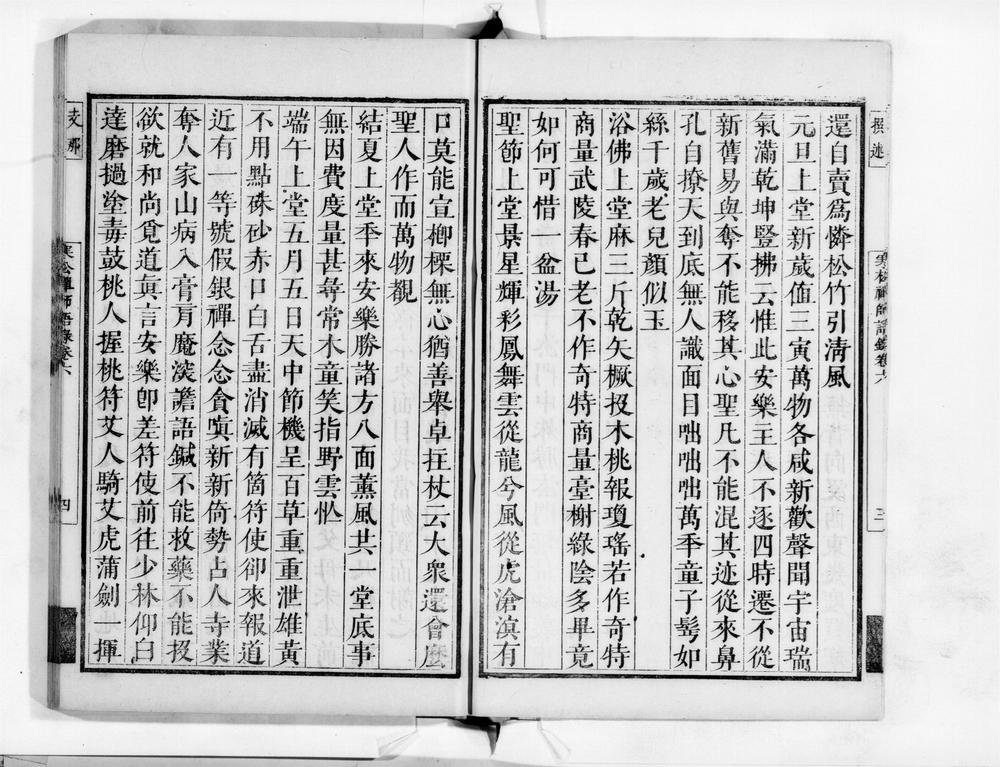 撰述
寒松禪師語錄卷六
三
還自賣為憐松竹引清風
元旦上堂新歲值三寅萬物各咸新歡聲聞宇宙瑞
氣滿乾坤豎拂云惟此安樂主人不逐四時遷不從
新舊易與奪不能移其心聖凡不能混其迹從來鼻
孔自撩天到底無人識面目咄咄咄萬季童子髩如
絲千歲老兒顏似玉
浴佛上堂麻三斤乾矢橛投木桃報瓊瑤若作奇特
商量武陵春已老不作奇特商量臺榭綠陰多畢竟
如何可惜一盆湯
聖節上堂景星輝彩鳳舞雲從龍兮風從虎滄溟有
口莫能宣楖㮚無心猶善舉卓拄杖云大衆還會麼
聖人作而萬物覩
結夏上堂季來安樂勝諸方八面薰風共一堂底事
無因費度量甚尋常木童笑指野雲忙
端午上堂五月五日天中節機呈百草重重泄雄黃
不用點硃砂赤口白舌盡消滅有箇符使卻來報道
近有一等號假銀禪念念貪嗔新新倚勢占人寺業
奪人家山病入膏肓魔深譫語鍼不能救藥不能投
欲就和尚覓道真言安樂卽差符使前往少林仰白
達磨撾塗毒鼓桃人握桃符艾人騎艾虎蒲劍一揮
支那
寒松禪師語錄卷六
四